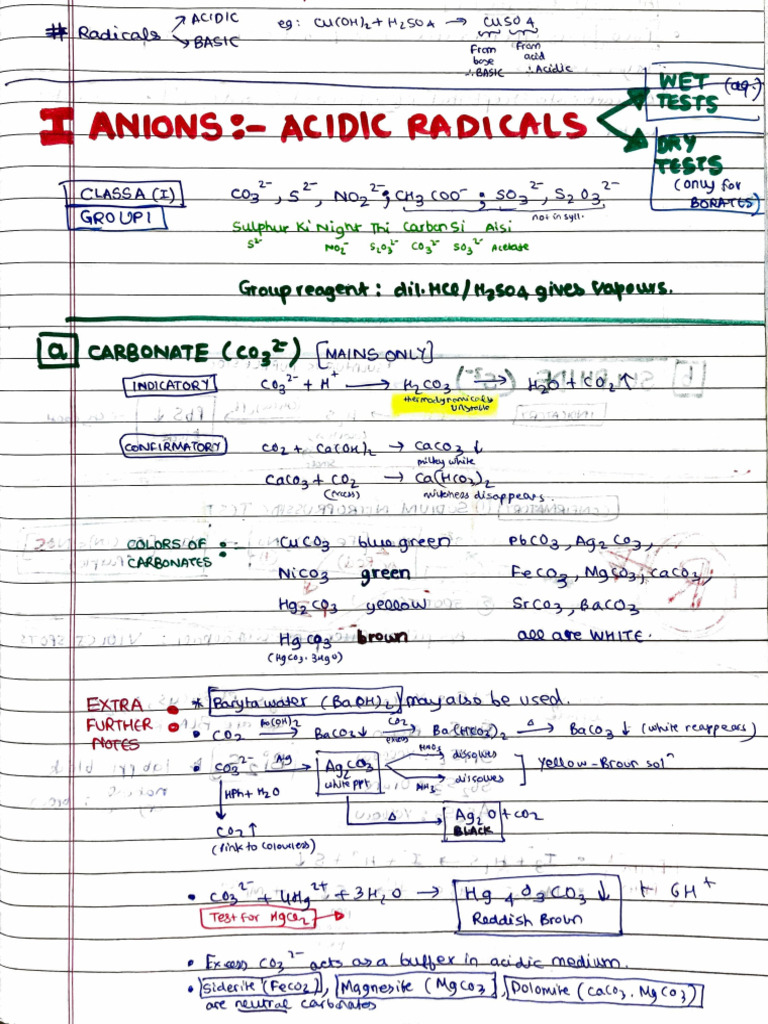 # Radicals → ACIDIC
→ BASIC
eg: Cu(OH)₂ + H₂SO₄ → CuSO₄
From base ∴ BASIC
From acid ∴ Acidic
I ANIONS:- ACIDIC RADICALS
WET TESTS (aq.)
DRY TESTS (only for BORATES)
CLASS A (I)
GROUP 1
CO₃²⁻, S²⁻, NO₂²⁻; CH₃COO⁻; SO₃²⁻, S₂O₃²⁻
not in syll.
Sulphur Ki Night Thi Carbon Si Aisi
S²⁻ NO₂⁻ S₂O₃²⁻ CO₃²⁻ SO₃²⁻ Acetate
Group reagent: dil. HCl/H₂SO₄ gives vapours.
a CARBONATE (CO₃²⁻) [MAINS ONLY]
INDICATORY CO₃²⁻ + H⁺ → H₂CO₃ → H₂O + CO₂↑
thermodynamically unstable
CONFIRMATORY CO₂ + Ca(OH)₂ → CaCO₃↓
milky white
CaCO₃ + CO₂ → Ca(HCO₃)₂
milkiness disappears.
COLORS OF CARBONATES :-
CuCO₃ blue green PbCO₃, Ag₂CO₃,
NiCO₃ green FeCO₃, MgCO₃, CaCO₃,
Hg₂CO₃ yellow SrCO₃, BaCO₃
HgCO₃ brown all are WHITE.
(HgCO₃·3HgO)
EXTRA FURTHER NOTES :
* Baryta water (Ba(OH)₂) may also be used.
• CO₂ —Ba(OH)₂→ BaCO₃↓ —CO₂ excess→ Ba(HCO₃)₂ —Δ→ BaCO₃↓ (white reappears)
• CO₃²⁻ —Ag→ Ag₂CO₃ white ppt
HNO₃ → dissolves
NH₃ → dissolves
] Yellow-Brown solⁿ
HPh + H₂O
Δ → Ag₂O + CO₂
BLACK
CO₂↑
(Pink to colourless)
• CO₃²⁻ + 4Hg²⁺ + 3H₂O → Hg₄O₃CO₃↓ + 6H⁺
Reddish Brown
Test for HgCl₂ →
• Excess CO₃²⁻ acts as a buffer in acidic medium.
• Siderite (FeCO₃), Magnesite (MgCO₃), Dolomite (CaCO₃.MgCO₃)
are neutral carbonates